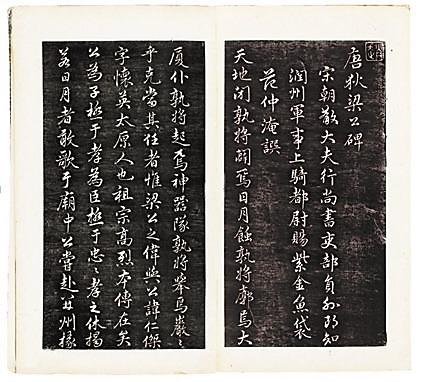 唐狄梁公碑
宋朝散大夫行尚書吏部員外郎知
潤州軍事上騎都尉賜紫金魚袋
范仲淹譔
天地閉孰將闢焉日月蝕孰將廓焉大
厦仆孰將起焉神器隊孰將舉焉巖々
乎克當其任者惟梁公之偉歟公諱仁傑
字懷英太原人也祖宗高烈本傳在矣
公為子極于孝為臣極于忠々孝之休揭
若日月者敢歌于廟中公嘗赴并州掾